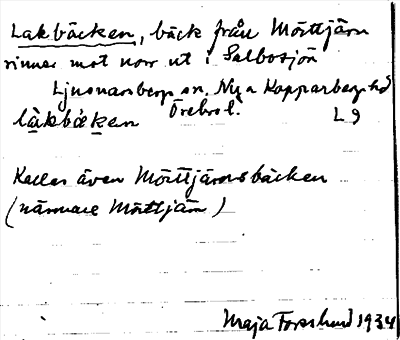 Lakbäcken, bäck från Mörttjärn
rinner mot norr ut i Salbosjön
Ljusnarsbergs sn. Nya Kopparbergs hd
Örebro l. L 9
låkbäken
Kallas även Mörttjärnsbäcken
(närmare Mörttjärn)
Maja Forslund 1934